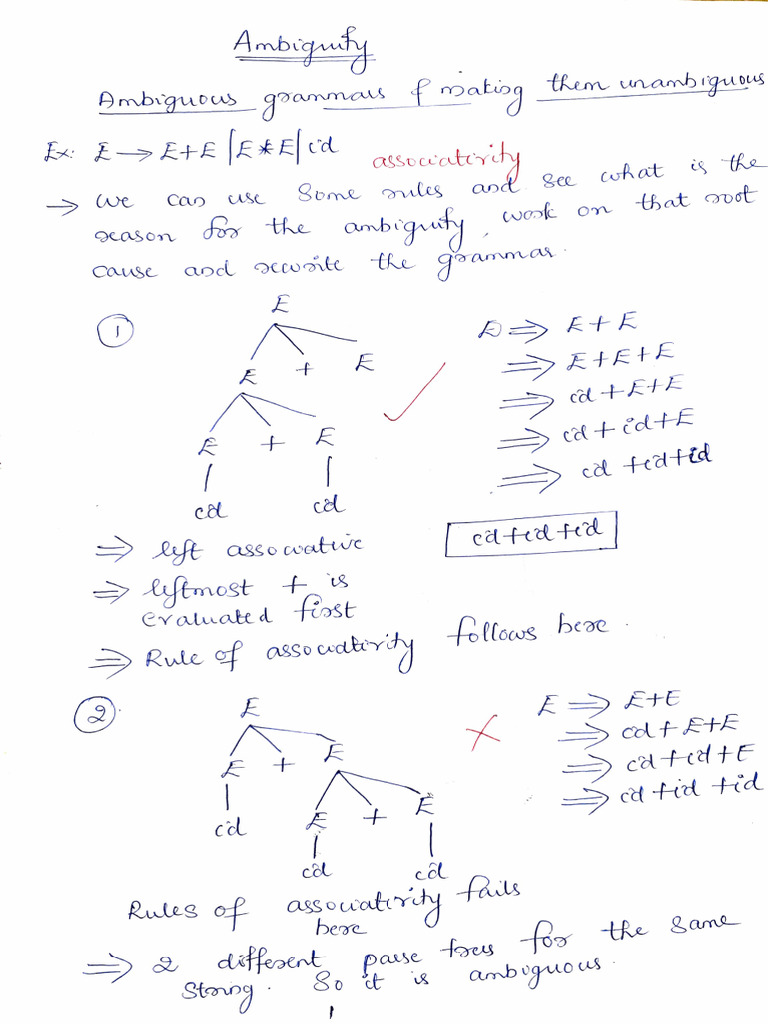 Ambiguity
Ambiguous grammars & making them unambiguous
Ex: E → E+E | E*E | id
associativity
→ we can use some rules and see what is the
reason for the ambiguity, work on that root
cause and rewrite the grammar.
① E
E + E
E + E
id id
E ⇒ E + E
⇒ E+E+E
⇒ id + E+E
⇒ id + id + E
⇒ id +id+id
⇒ left associative
id+id+id
⇒ leftmost + is
evaluated first
⇒ Rule of associativity follows here.
② E
E + E
id E + E
id id
E ⇒ E+E
⇒ id + E+E
⇒ id + id + E
⇒ id +id +id
Rules of associativity fails
here
⇒ 2 different parse trees for the same
string. So it is ambiguous.